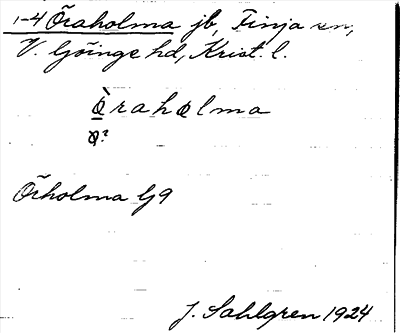 1-4 Öraholma jb, Finja sn,
V. Göinge hd, Krist. l.
ö̀raholma
o̗?
Örholma G9
J. Sahlgren 1924